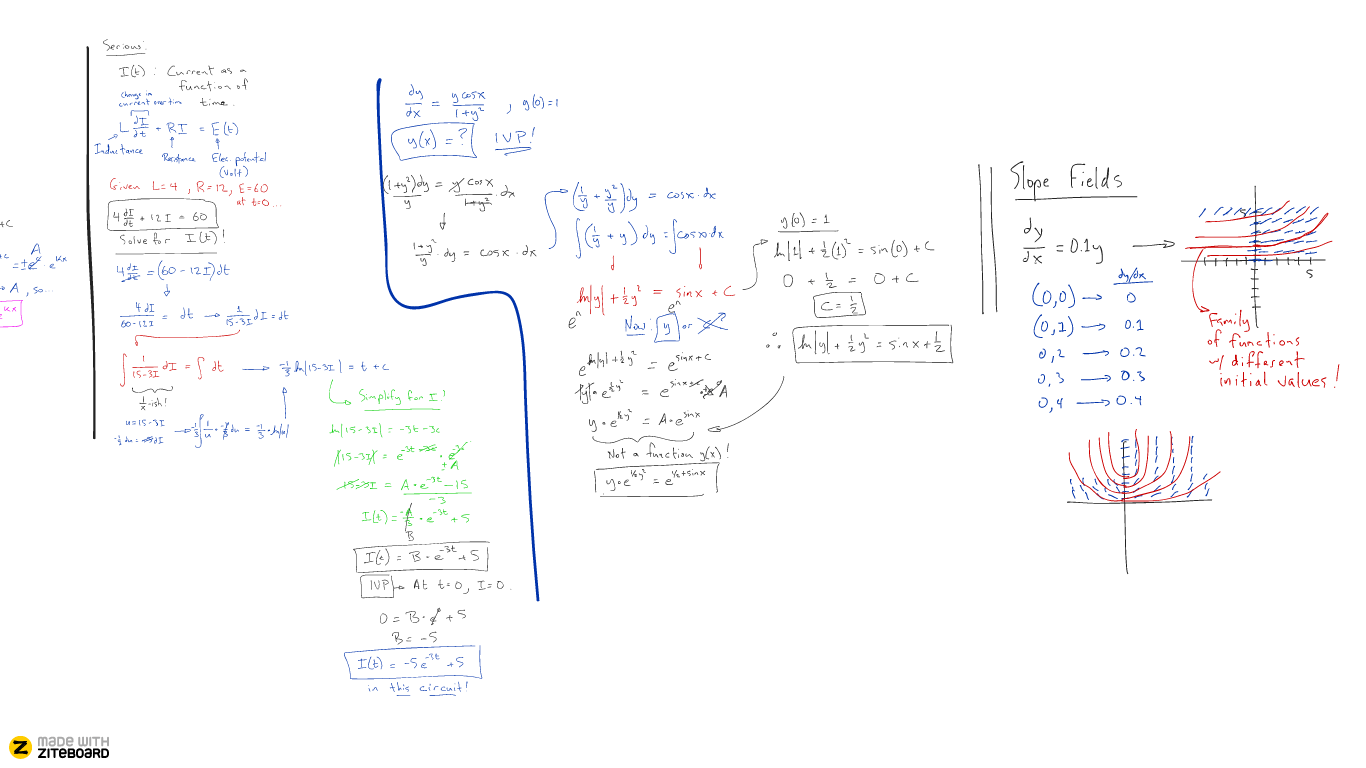 +C
A
= ±e^C e^kx
→ A, so...
e^kx
Serious:
I(t) : Current as a
function of
time.
Change in
current over tim
L dI/dt + RI = E(t)
Inductance
Resistance
Elec. potential
(Volt)
Given L=4, R=12, E=60
at t=0...
4 dI/dt + 12I = 60
Solve for I(t)!
4 dI/dt = (60-12I)dt
4dI/(60-12I) = dt → 1/(15-3I) dI = dt
∫ 1/(15-3I) dI = ∫ dt → -1/3 ln|15-3I| = t + C
1/x-ish!
u = 15-3I
-1/3 du = dI → -1/3 ∫ 1/u du = -1/3 · ln|u|
Simplify for I!
ln|15-3I| = -3t-3c
|15-3I| = e^-3t · e^-3c
± A
15-3I = A·e^-3t -15
-3
I(t) = -A/3 · e^-3t + 5
B
I(t) = B·e^-3t + 5
IVP → At t=0, I=0.
0 = B·1 + 5
B = -5
I(t) = -5e^-3t + 5
in this circuit!
dy/dx = y cosx/(1+y²) , y(0)=1
y(x) = ? IVP!
(1+y²)dy/y = y cosx/(1+y²) · dx
(1+y²)/y · dy = cosx · dx
(1/y + y²/y)dy = cosx · dx
∫(1/y + y) dy = ∫cosx dx
ln|y| + ½y² = sinx + C
e^n e^n
Now: y or x?
e^(ln|y| + ½y²) = e^(sinx + C)
|y|·e^(½y²) = e^(sinx) · A
y·e^(½y²) = A·e^(sinx)
Not a function y(x)!
y·e^(½y²) = e^(½+sinx)
y(0) = 1
ln|1| + ½(1)² = sin(0) + C
0 + ½ = 0 + C
C = ½
∴ ln|y| + ½y² = sinx + ½
Slope Fields
dy/dx = 0.1y →
5
dy/dx
(0,0) → 0
(0,1) → 0.1
0,2 → 0.2
0,3 → 0.3
0,4 → 0.4
Family
of functions
w/ different
initial values!
MADE WITH
ZITEBOARD